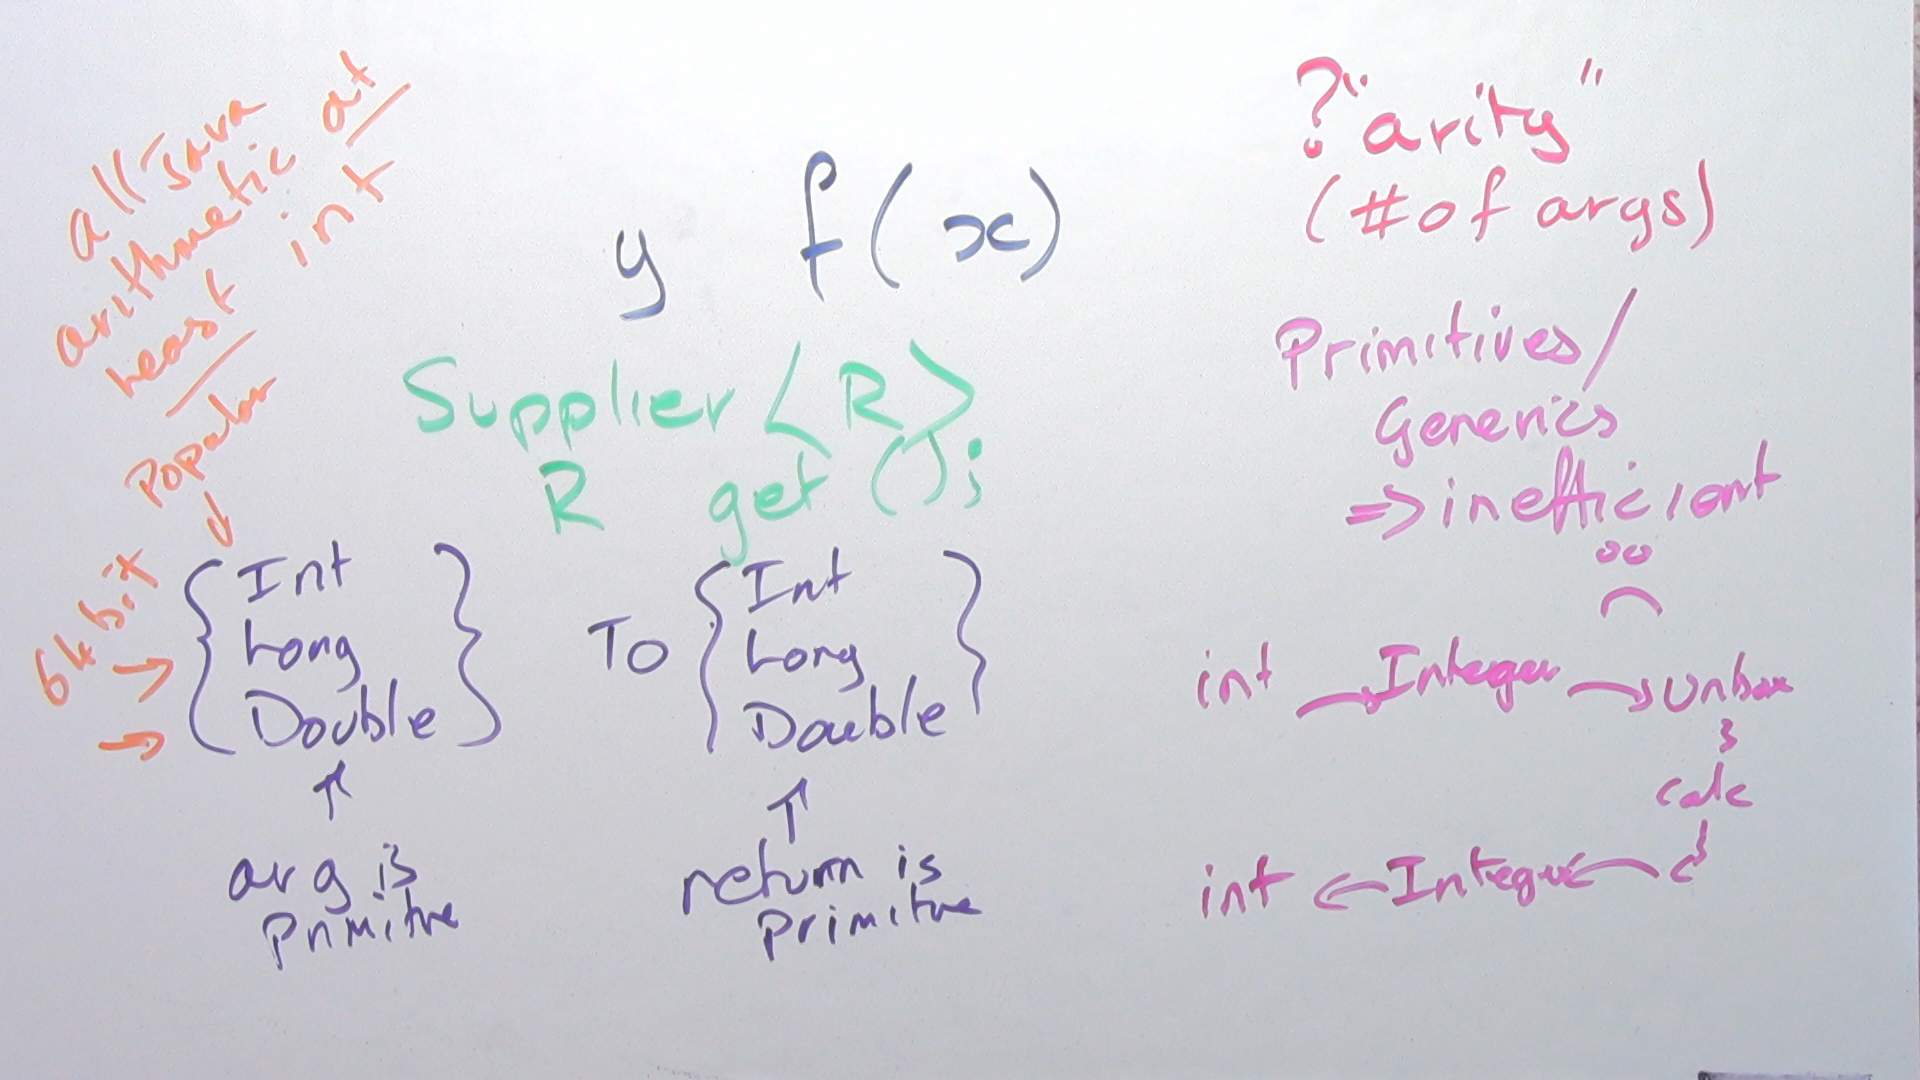 all Java
arithmetic at
least int
Popular
64 bit
y f(x)
Supplier <R>
R get();
{ Int }
Long
Double
To
{ Int }
Long
Double
arg is
Primitive
return is
Primitive
? "arity"
(# of args)
Primitives/
Generics
=> inefficient
int → Integer → unbox
calc
int ← Integer ←